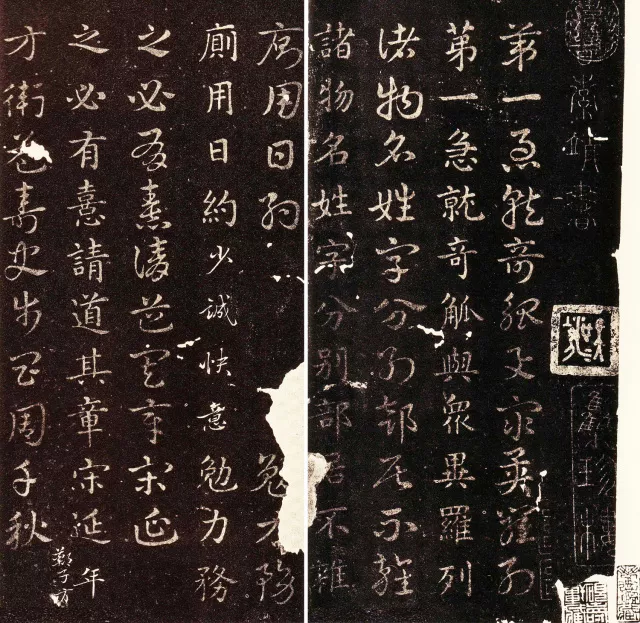 索靖書
第一急就奇觚與眾異羅列
第一急就奇觚與眾異羅列
諸物名姓字分別部居不雜
諸物名姓字分別部居不雜
廁用日約勉力務
廁用日約少誠快意勉力務
之必有憙請道其章宋延
之必有憙請道其章宋延年
鄭子方
方衛益壽史步昌周千秋